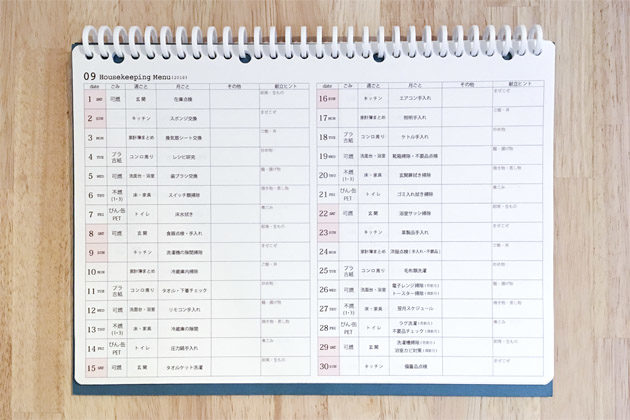 09 Housekeeping Menu(2018)
date ごみ 週ごと 月ごと その他 献立ヒント
1 SAT 可燃 玄関 在庫点検
2 SUN キッチン スポンジ交換
3 MON 家計簿まとめ 換気扇シート交換 ご飯・丼
4 TUE プラ古紙 コンロ周り レシピ研究 炒め物
5 WED 可燃 洗面台・浴室 歯ブラシ交換
6 THU 不燃(1・3) 床・家具 スイッチ類掃除 焼き物・蒸し物
7 FRI びん・缶PET トイレ 床水拭き 煮こみ
8 SAT 可燃 玄関 食器点検・手入れ
9 SUN キッチン 洗濯機の隙間掃除
10 MON 家計簿まとめ 冷蔵庫内掃除 ご飯・丼
11 TUE プラ古紙 コンロ周り タオル・下着チェック 炒め物
12 WED 可燃 洗面台・浴室 リモコン手入れ
13 THU 不燃(1・3) 床・家具 冷蔵庫の隙間 焼き物・蒸し物
14 FRI びん・缶PET トイレ 圧力鍋手入れ 煮こみ
15 SAT 可燃 玄関 タオルケット洗濯
date ごみ 週ごと 月ごと その他 献立ヒント
16 SUN キッチン エアコン手入れ
17 MON 家計簿まとめ 照明手入れ ご飯・丼
18 TUE プラ古紙 コンロ周り ケトル手入れ 炒め物
19 WED 可燃 洗面台・浴室 靴箱掃除・不要品点検
20 THU 不燃(1・3) 床・家具 玄関扉拭き掃除 焼き物・蒸し物
21 FRI びん・缶PET トイレ ゴミ入れ拭き掃除 煮こみ
22 SAT 可燃 玄関 浴室サッシ掃除
23 SUN キッチン 革製品手入れ
24 MON 家計簿まとめ 洋服点検(手入れ・不要品) ご飯・丼
25 TUE プラ古紙 コンロ周り 毛布類洗濯 炒め物
26 WED 可燃 洗面台・浴室 電子レンジ掃除
トースター掃除
27 THU 不燃(1・3) 床・家具 翌月スケジュール 焼き物・蒸し物
28 FRI びん・缶PET トイレ ラグ洗濯
不要品チェック 煮こみ
29 SAT 可燃 玄関 洗濯機掃除
浴室カビ対策
30 SUN キッチン 備蓄品点検